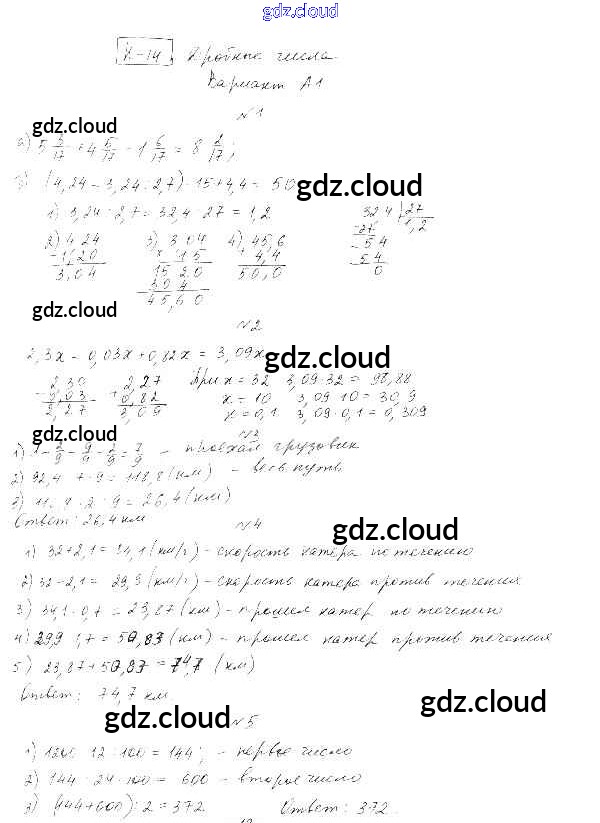 gdz.cloud
К-14 Дробные числа
Вариант А1
№1
gdz.cloud
а) 5 3/17 + 4 5/17 - 1 6/17 = 8 2/17;
(4,24 - 3,24 : 2,7) · 15 + 4,4 = 50
gdz.cloud
1) 3,24 : 2,7 = 32,4 : 27 = 1,2
32 4 | 27
27 1,2
- 5 4
5 4
0
2) 4 24
- 1,20
3,04
3) 3 04
× 15
15 20
30 4
45,6 0
4) 45,6
+ 4,4
50,0
gdz.cloud
№2
2,3x - 0,03x + 0,82x = 3,09x
gdz.cloud
2,30
- 0,03
2,27
2,27
+ 0,82
3,09
При x = 32 3,09·32 = 98,88
x = 10 3,09·10 = 30,9
x = 0,1 3,09·0,1 = 0,309
gdz.cloud
№3
- проехал грузовик
2) 92,4 : 7 · 9 = 118,8 (км) - весь путь
· 2 : 9 = 26,4 (км)
Ответ: 26,4 км
№4
gdz.cloud
1) 32+2,1 = 34,1 (км/ч) - скорость катера по течению
2) 32-2,1 = 29,9 (км/ч) - скорость катера против течения
3) 34,1 · 0,7 = 23,87 (км) - прошел катер по течению
4) 29,9 · 1,7 = 50,83 (км) - прошел катер против течения
5) 23,87+50,83 = 74,7 (км)
Ответ: 74,7 км
gdz.cloud
gdz.cloud
№5
1) 1200 · 12 : 100 = 144; - первое число
2) 144 : 24 · 100 = 600 - второе число
3) (144+600) : 2 = 372
Ответ: 372
gdz.cloud
gdz.cloud